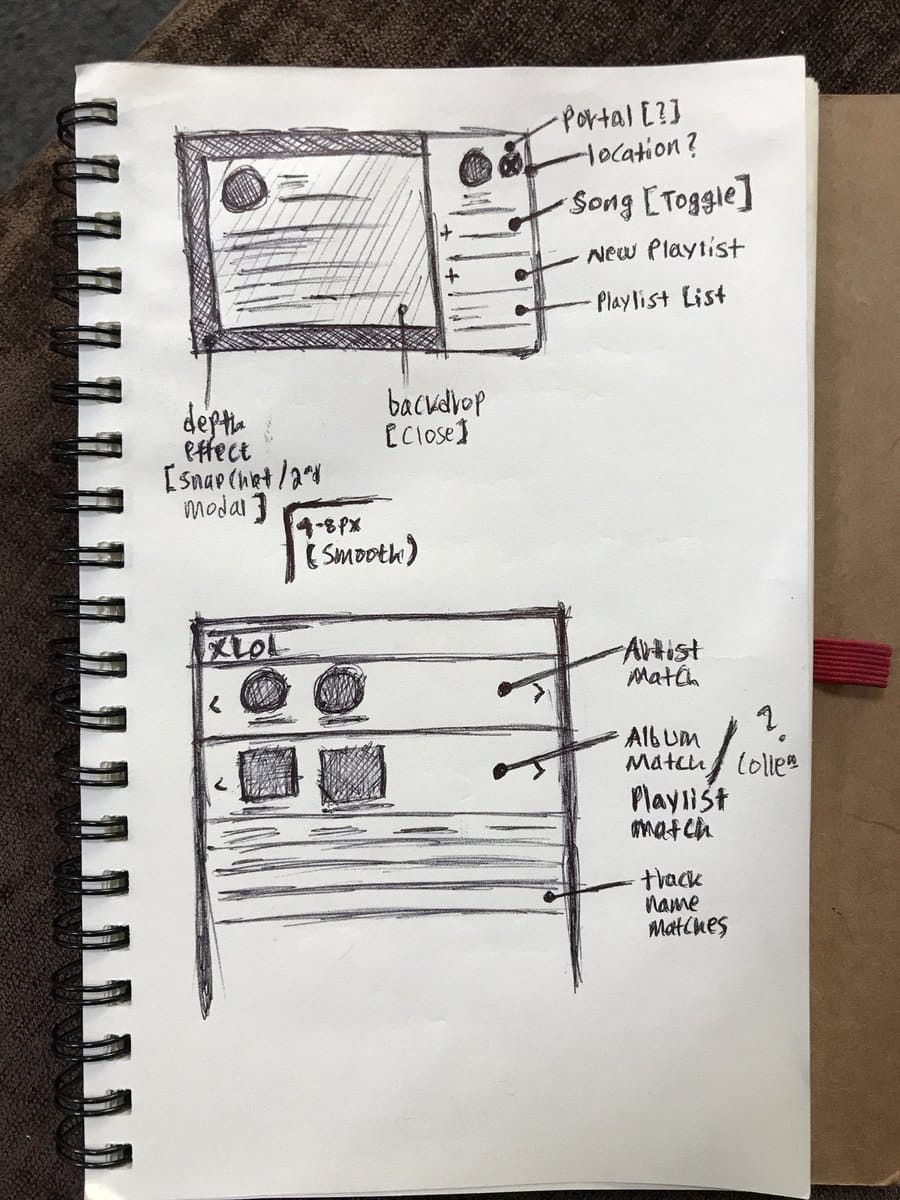 Portal [?]
location?
Song [Toggle]
New Playlist
Playlist List
+
+
depth
effect
[snapchat/2nd
modal]
backdrop
[close]
4-8px
(smooth)
Artist
Match
Album
Match/
?
Playlist
Match
track
name
matches